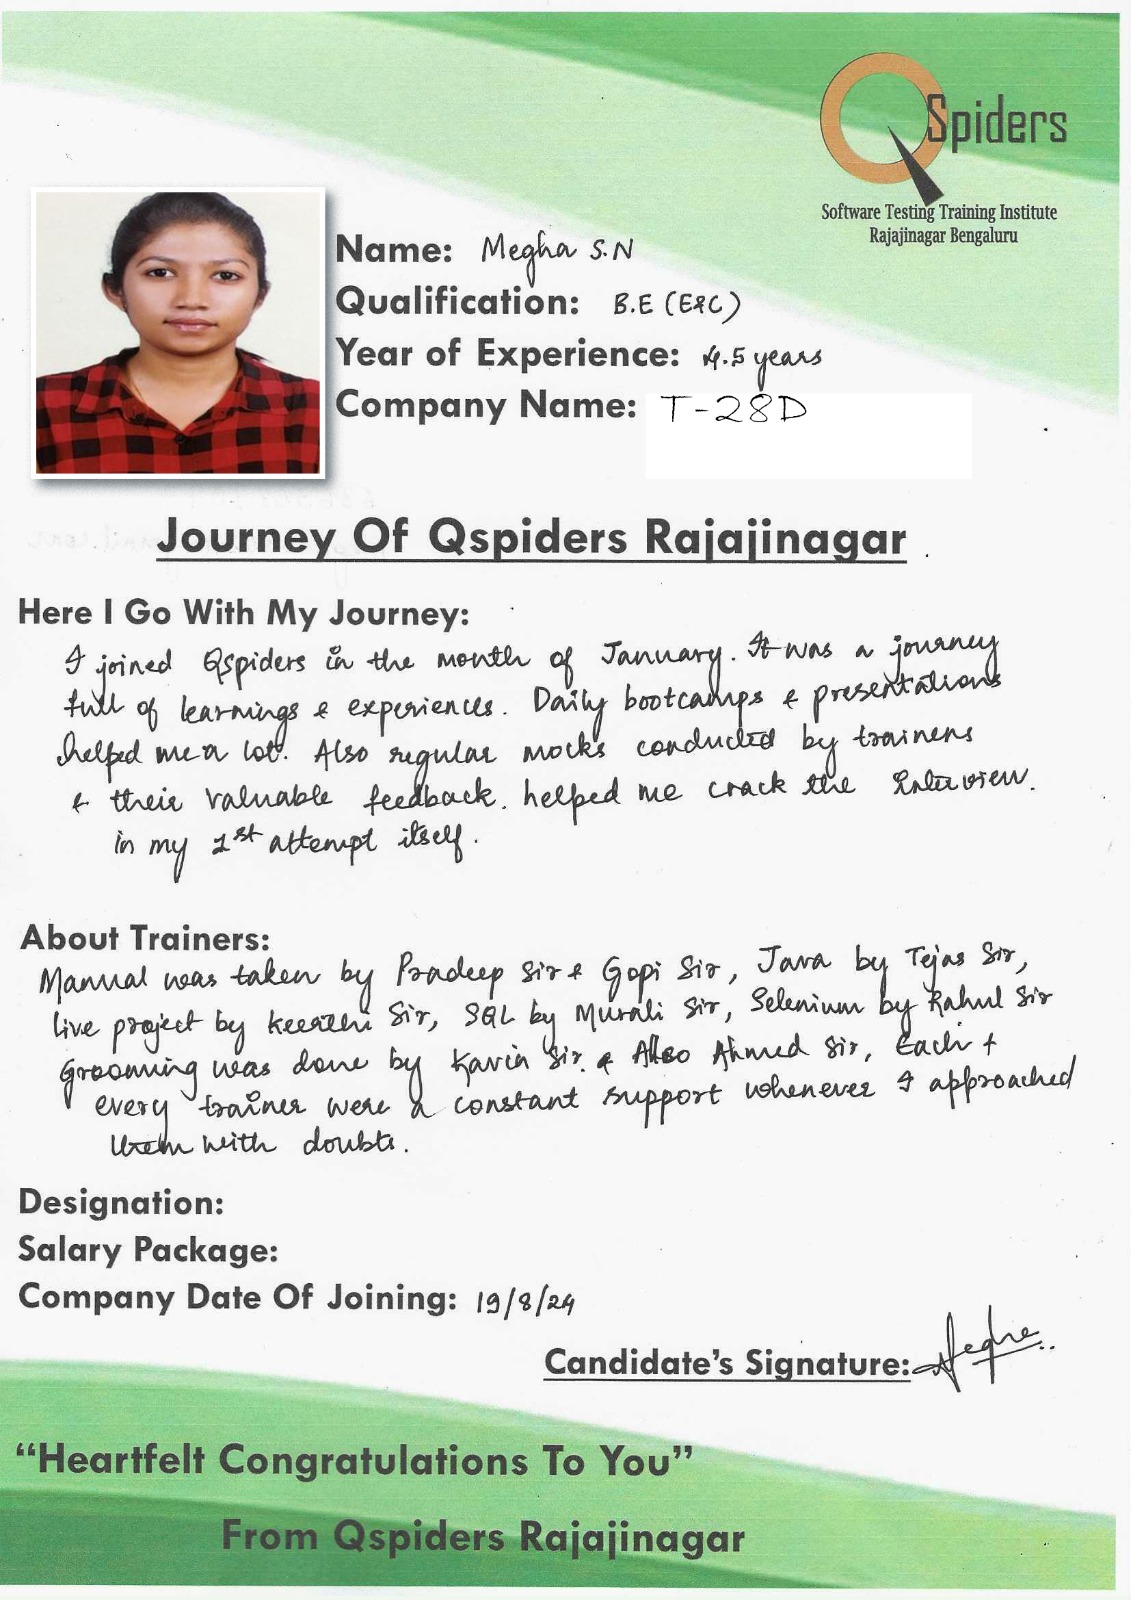 QSpiders
Software Testing Training Institute
Rajajinagar Bengaluru
Name: Megha S.N
Qualification: B.E (E&C)
Year of Experience: 4.5 years
Company Name: T-28D
Journey Of Qspiders Rajajinagar
Here I Go With My Journey:
I joined Qspiders in the month of January. It was a journey
full of learnings & experiences. Daily bootcamps & presentations
helped me a lot. Also regular mocks conducted by trainers
& their valuable feedback. helped me crack the Interview.
in my 1st attempt itself.
About Trainers:
Manual was taken by Pradeep Sir & Gopi Sir, Java by Tejas Sir,
live project by Keerthi Sir, SQL by Murali Sir, Selenium by Rahul Sir
Grooming was done by Kavin Sir. & Also Ahmed Sir, Each &
every trainer were a constant support whenever I approached
them with doubts.
Designation:
Salary Package:
Company Date Of Joining: 19/8/24
Candidate's Signature: Megha
"Heartfelt Congratulations To You"
From Qspiders Rajajinagar